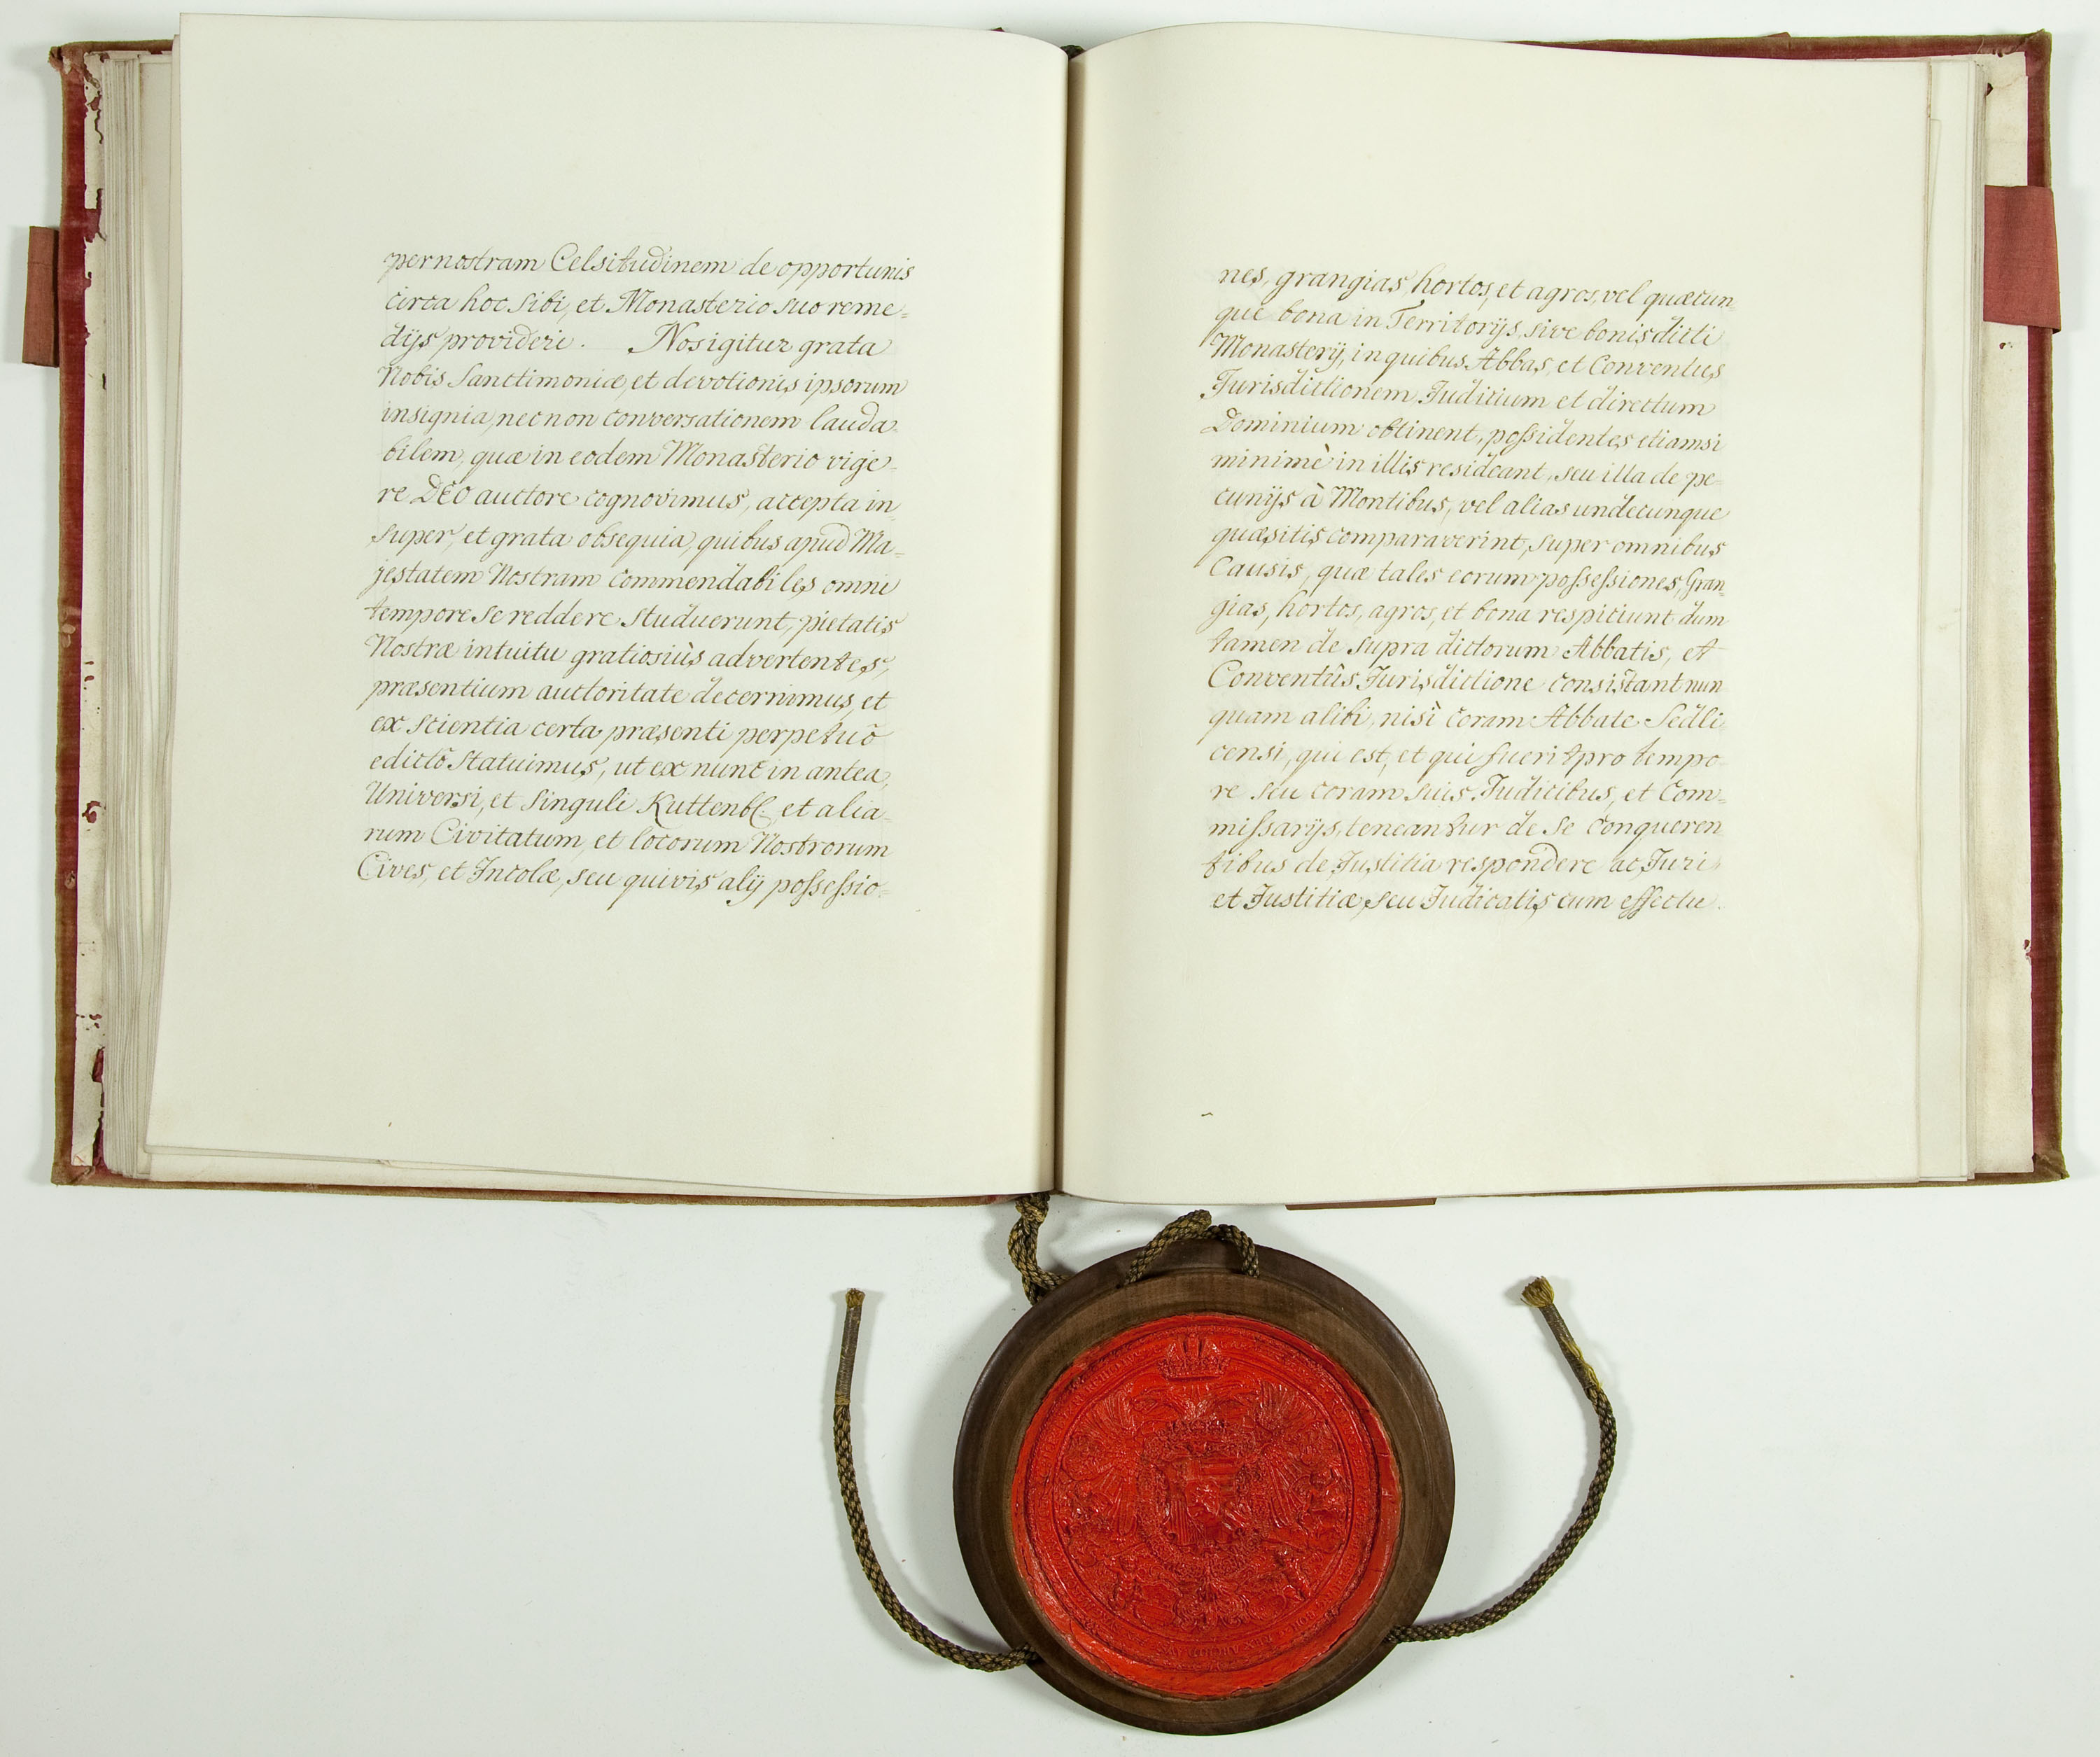 per nostram Celsitudinem de opportunis
circa hoc sibi, et Monasterio suo reme=
dijs provideri. Nos igitur grata
Nobis Sanctimoniæ, et devotionis ipsorum
insignia, nec non conversationem lauda=
bilem, quæ in eodem Monasterio vige=
re DEO auctore cognovimus, accepta in=
super, et grata obsequia, quibus apud Ma=
jestatem Nostram commendabiles omni
tempore se reddere studuerunt, pietatis
Nostræ intuitu gratiosiùs advertentes,
præsentium auctoritate decernimus, et
ex scientia certa præsenti perpetuò
edictô statuimus, ut ex nunc in antea,
Universi, et singuli Kuttenb. et alia=
rum Civitatum, et locorum Nostrorum
Cives, et Incolæ, seu quivis alij possessio=
nes, grangias, hortos, et agros, vel quæcun=
que bona in Territorijs, sive bonis dicti
Monasterij, in quibus Abbas, et Conventus
Jurisdictionem Juditium et directum
Dominium obtinent, possidentes etiamsi
minimè in illis resideant, seu illa de pe=
cunijs à Montibus, vel alias undecunque
quæsitis comparaverint, super omnibus
Causis, quæ tales eorum possessiones, Gran=
gias, hortos, agros, et bona respiciunt dum
tamen de supra dictorum Abbatis, et
Conventûs Jurisdictione consistant nun=
quam alibi, nisi coram Abbate Sedli=
censi, qui est, et qui fuerit pro tempo=
re seu coram suis Judicibus, et Com=
missarijs, teneantur de se conqueren=
tibus de Justitia respondere ac Juri
et Justitiæ, seu Judicatis cum effectu